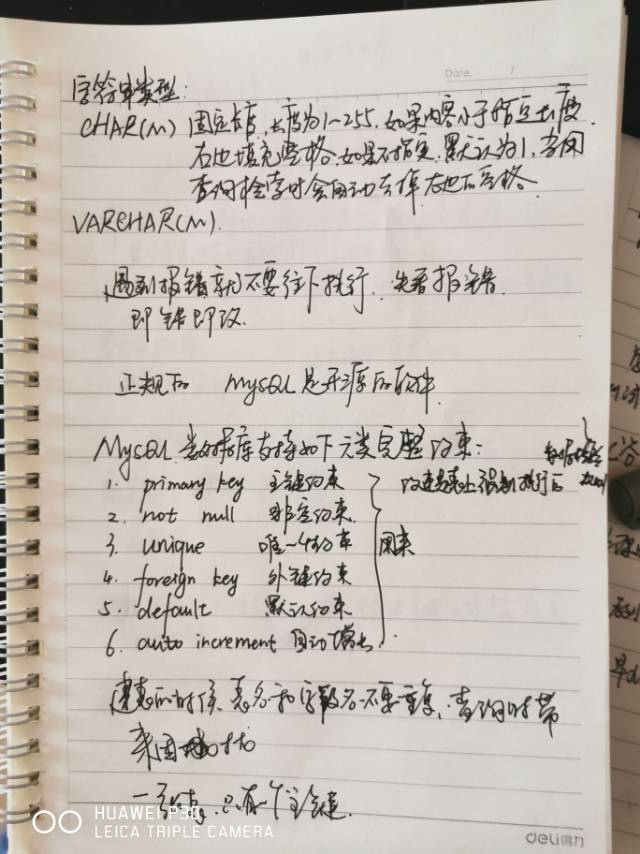 Date.
字符串类型:
CHAR(M) 固定长度,长度为1~255.如果内容小于指定长度.
右边填充空格.如果不指定.默认为1,
查询检索时会自动去掉右边的空格.
VARCHAR(M).
遇到报错就不要往下执行.先看报错.
即错即改.
正规的 MySQL是开源的软件.
MySQL数据库支持如下六类完整约束:
1. primary key 主键约束
2. not null 非空约束.
3. unique 唯一约束
4. foreign key 外键约束
5. default 默认约束
6. auto increment 自动增长.
约束是表上强制执行的
用来
建表的时候、表名和字段名不要重复,查询时带
来困扰
一张表,只有一个主键.
HUAWEI P30
LEICA TRIPLE CAMERA
deli得力